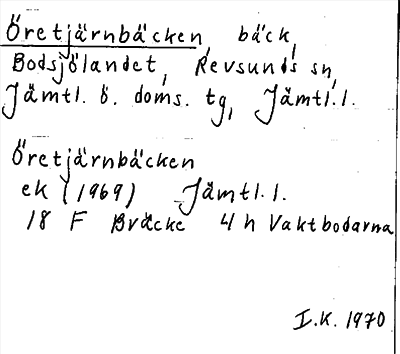 Öretjärnbäcken, bäck,
Bodsjölandet, Revsunds sn,
Jämtl. ö. doms. tg, Jämtl. l.
Öretjärnbäcken
ek (1969) Jämtl. l.
18 F Bräcke 4 h Vaktbodarna
I.K. 1970